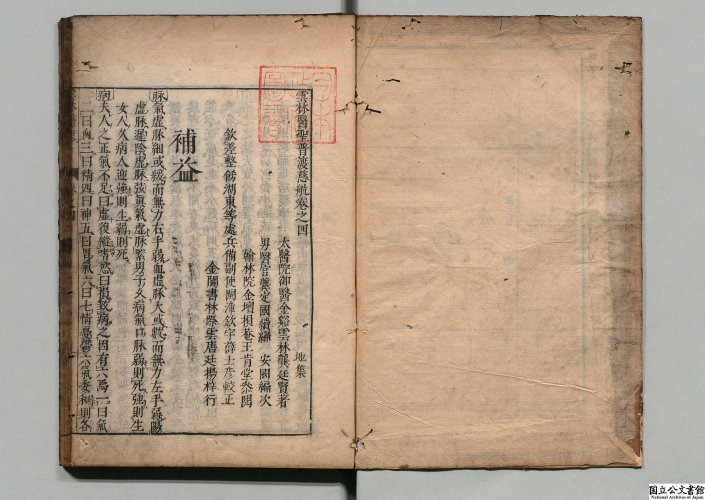 雲林醫聖普渡慈航卷之四
地集
太醫院御醫金谿雲林龔廷賢著
男醫官龔定國續編 安國編次
翰林院金壇損菴王肯堂參閱
欽差整飭湖東等處兵備副使閩漳欽宇薛士彥較正
金閶書林唐廷揚梓行
補益
脉氣虛脉細或緩而無力右手弱血虛脉大或數而無力左手弱陽
虛脉遲陰虛脉弦真氣虛脉緊男子久病氣口脉弱則死強則生
女人久病人迎強則生弱則死
病夫人之正氣不足曰虛後縱嗜慾曰損致病之因有六焉一曰氣
二曰血三曰精四曰神五曰胃氣六曰七情憂鬱六氣委和則各
国立公文書館
National Archives of Japan